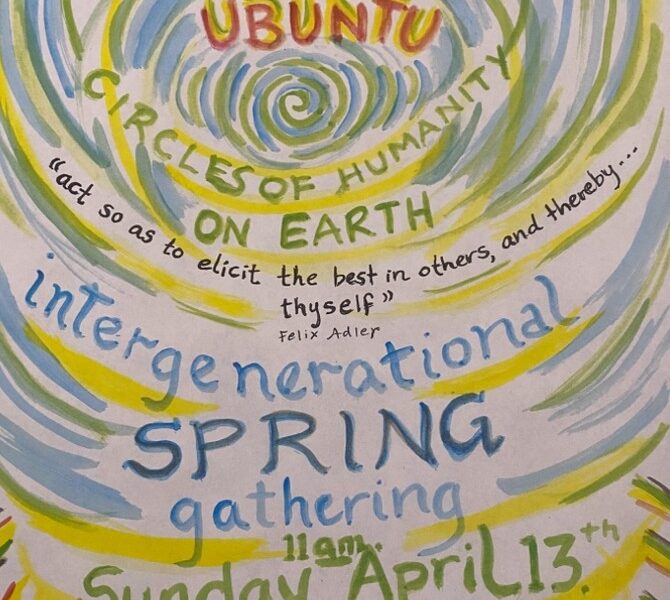 UBUNTU
CIRCLES OF HUMANITY
ON EARTH
"act so as to elicit the best in others, and thereby...
thyself"
Felix Adler
intergenerational
SPRING
gathering
11am.
Sunday April 13th.